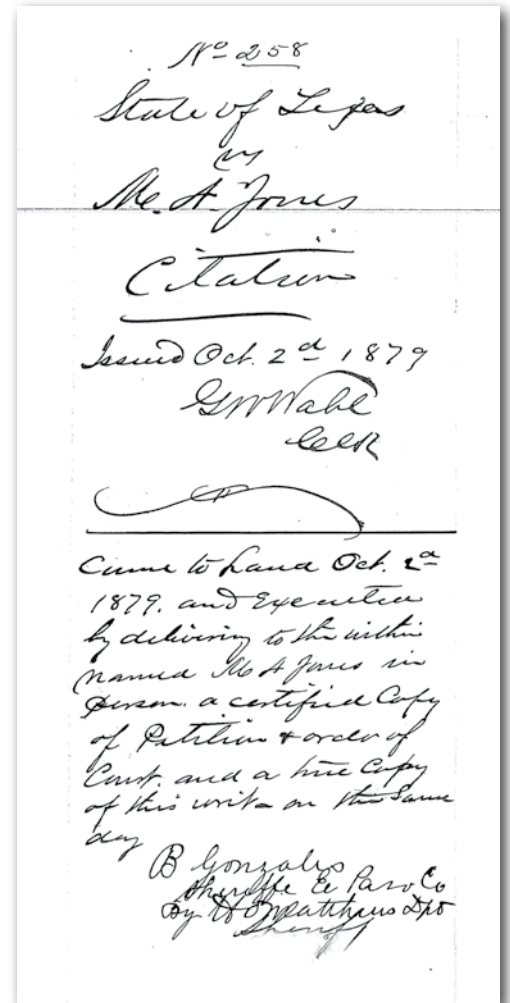 No 258
State of Texas
vs
M. A. Jones
Citation
Issued Oct. 2d 1879
G W Wahl
Clk
Came to hand Oct. 2d
1879. and Executed
by delivering to the within
named M A Jones in
person. a certified Copy
of Petition & order of
Court. and a true Copy
of this writ - on the same
day
B Gonzales
Sheriff El Paso Co
By Matthews Dpt
Sheriff